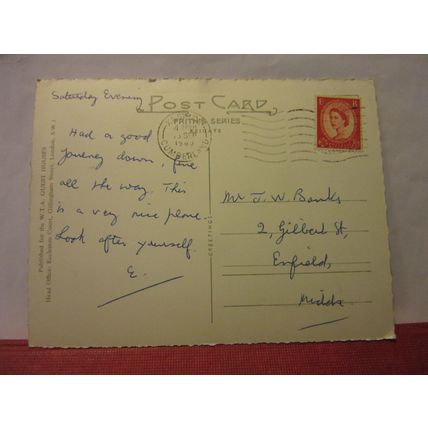 Saturday Evening
POST CARD
FRITH'S SERIES
REIGATE
CUMBERLAND
E R
Had a good
Journey down, fine
all the way. This
is a very nice place.
Look after yourself.
E.
GREETINGS
Mr J. W. Banks
2, Gilbert St,
Enfield,
Middx
Published for the W.T.A. GUEST HOUSES
Head Office: Eccleston Court, Gillingham Street, London, S.W.1